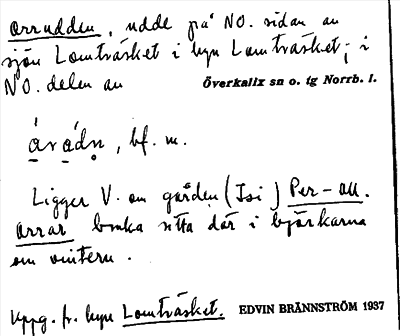 Orrudden, udde på NO. sidan av
sjön Lomträsket i byn Lomträsket; i
NO. delen av Överkalix sn o. tg Norrb. l.
árádn, bf. m.
Ligger V. om gården (Isi) Per-All.
Orrar bruka sitta där i björkarna
om vintern.
Uppg. fr. byn Lomträsket. EDVIN BRÄNNSTRÖM 1937